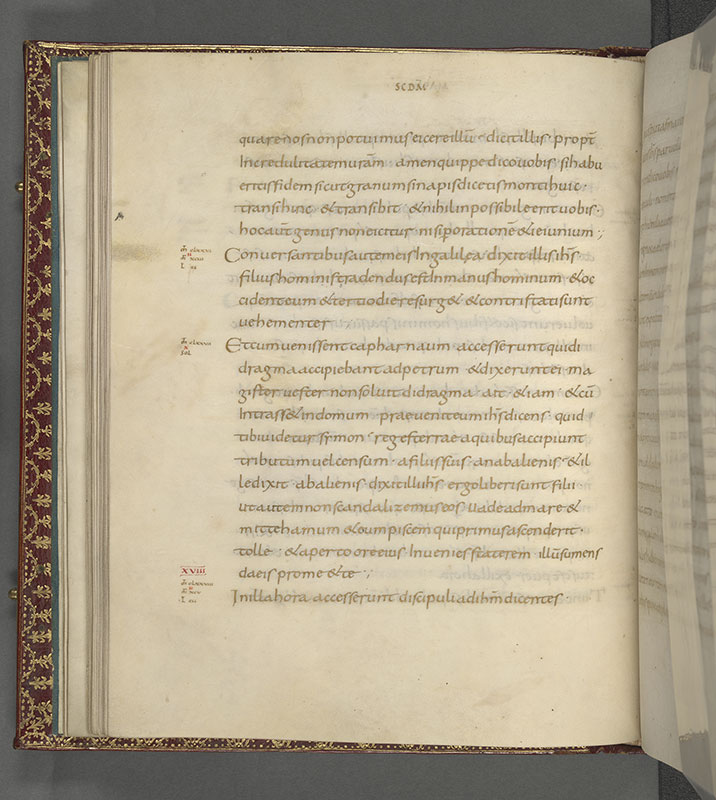 SCDM
quare nos non potuimus eicere illū · dicit illis · propt̄
Incredulitatem uram̄ · amen quippe dico uobis · si habu
eritis fidem sicut granum sinapis dicetis monti huic ·
transi hinc · & transibit · & nihil inpossibile erit uobis ·
hoc aut̄ genus non eicitur · nisi p orationē & ieiunium ;
Conuersantibus autem eis In galilęa · dixit illis ih̄s
filius hominis tradendus est In manus hominum · & oc
cident eum & tertio die resurg& · & contristati sunt
uehementer ;
Et cum uenissent capharnaum · accesserunt qui di
dragma accipiebant ad petrum · & dixerunt ei · ma
gister uester non soluit didragma · ait · &iam · & cū
Intrass& In domum · praeuenit eum ih̄s dicens · quid
tibi uidetur symon · reges terrae a quibus accipiunt
tributum uel censum · a filiis suis · an ab alienis · & il
le dixit · ab alienis · dixit illi ih̄s · ergo liberi sunt filii
ut autem non scandalizemus eos · uade ad mare &
mitte hamum · & eum piscem qui primus ascenderit ·
tolle · & aperto ore eius Inuenies staterem · illū sumens
da eis pro me & te ;
XVIII
In illa hora accesserunt discipuli ad ih̄m dicentes ·